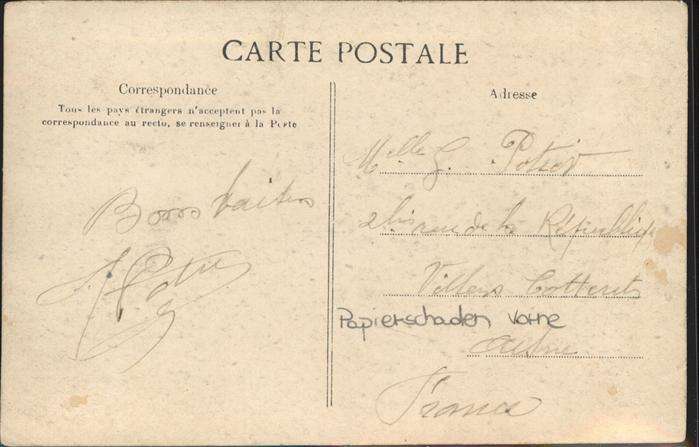 CARTE POSTALE
Correspondance
Tous les pays étrangers n'acceptent pas la
correspondance au recto, se renseigner à la Poste
Adresse
Bons baisers
Melle G.
2 bis rue de la République
Villers Cotterets
Papierschaden vorne
Aisne
France